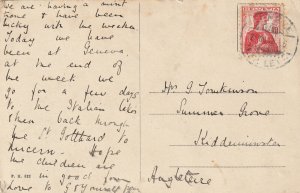 We are having a
time & have been
lucky with the weather
Today we have
been at Geneva
at the end of
the week we
go for a few days
to the Italian lakes
& then back through
the St Gotthard to
Lucern. Hope
the children are
in good
HELVETIA
Tomkinson
Summer Grove
Kidderminster
Angleterre